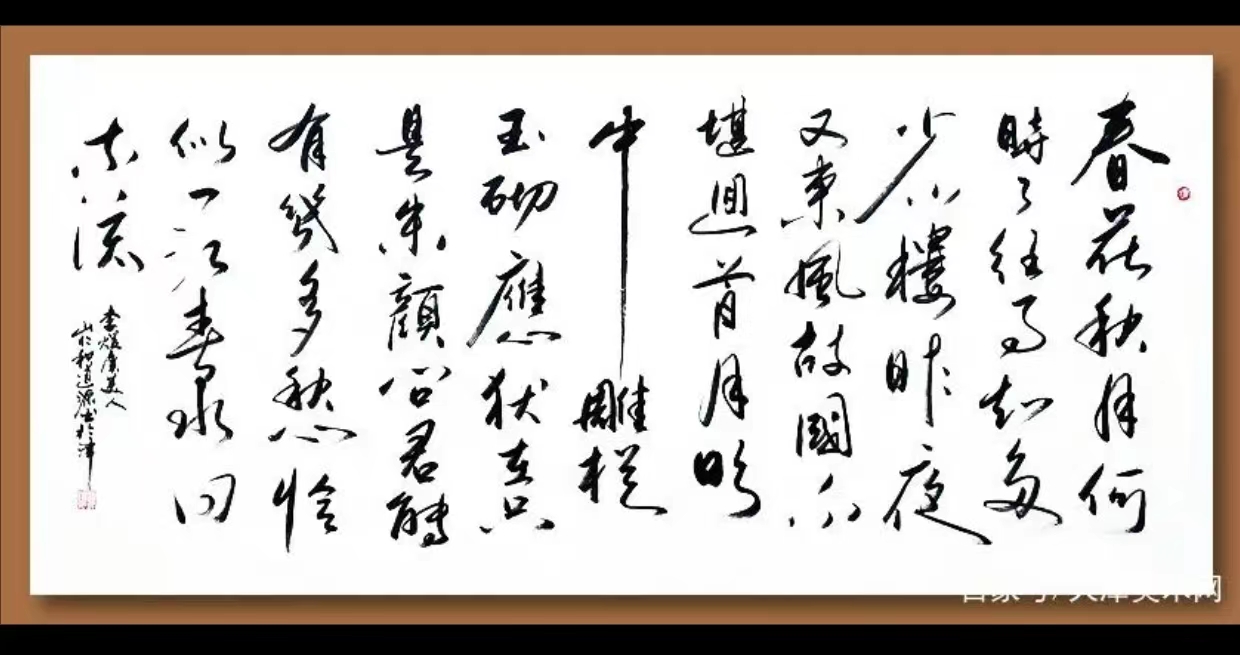 春花秋月何
時了往事知多
少小樓昨夜
又東風故國不
堪迴首月明
中雕欄
玉砌應猶在只
是朱顏改君能
有幾多愁恰
似一江春水向
東流
李煜虞美人
道源書於津
百家号/天津美术网